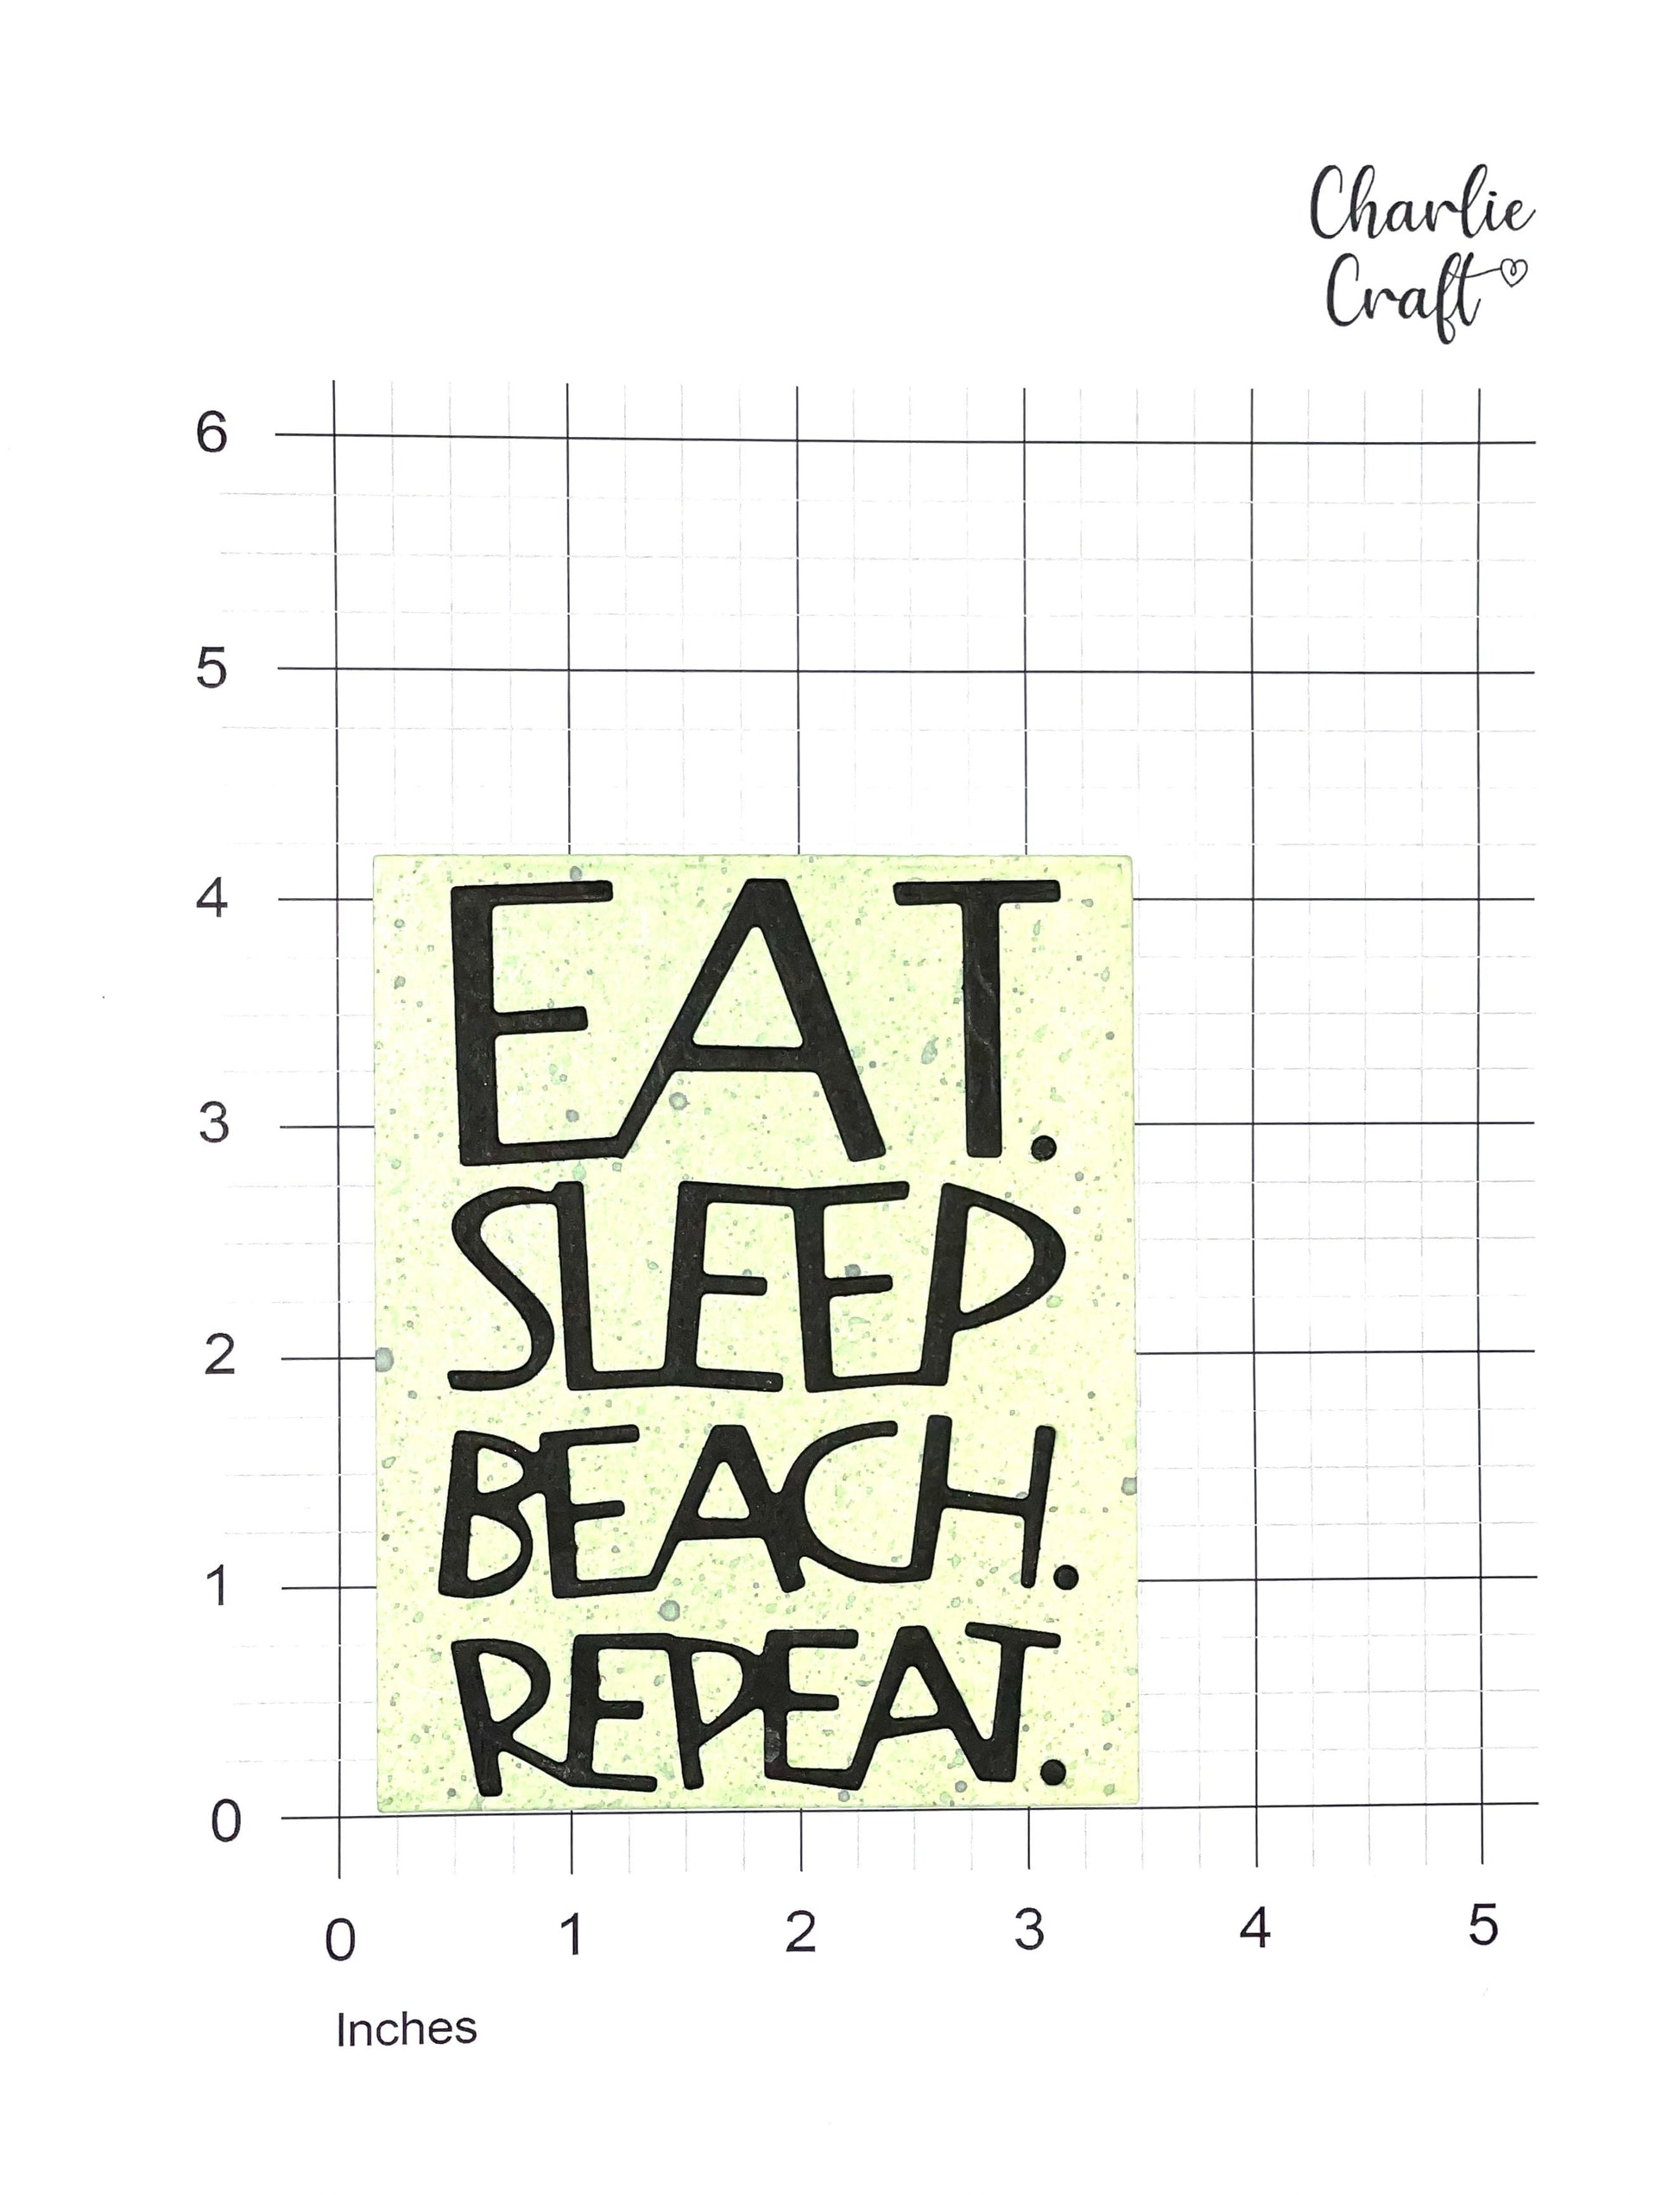 Charlie
Craft
6
5
4
EAT.
3
SLEEP
2
BEACH.
1
REPEAT.
0
0 1 2 3 4 5
Inches